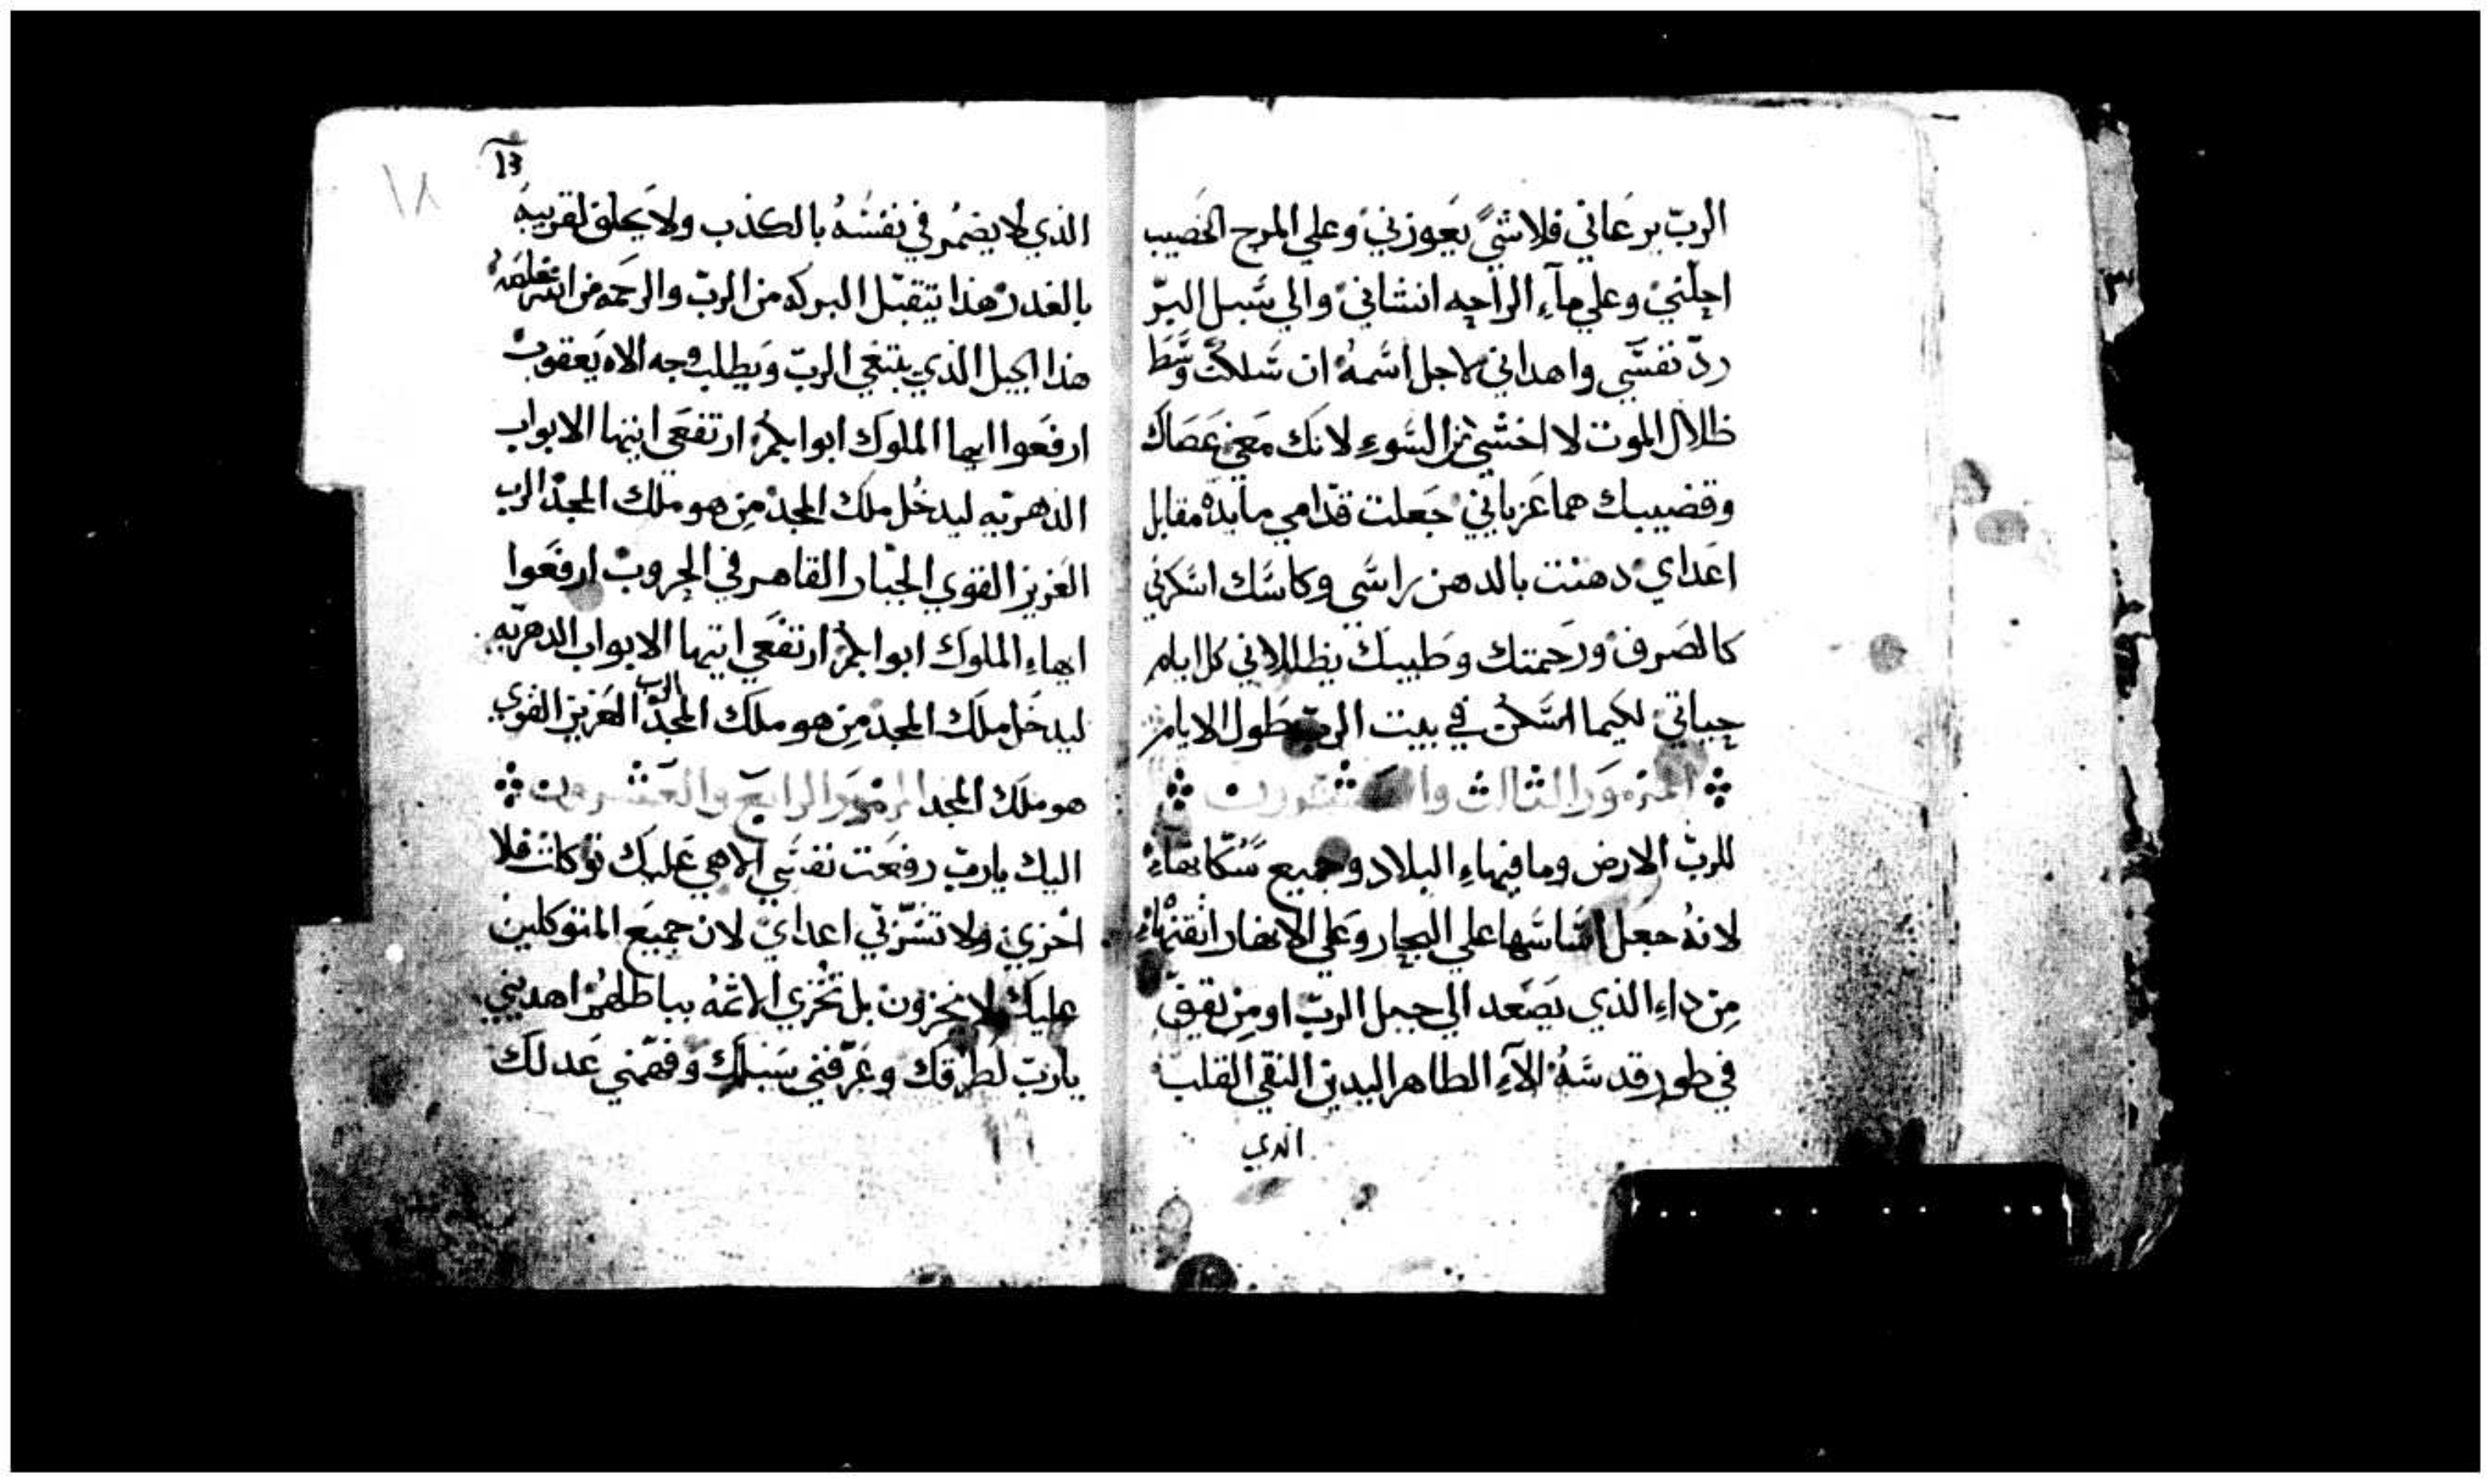 الربّ يرعاني فلا شيً يعوزني وعلي المرج الخصيب
احلّني وعلي مآء الراحه انشاني والي سبل البرّ
ردّ نفسي واهداني لاجل اسمهُ ان سلكت وسط
ظلال الموت لا اخشي من السوءِ لانك معي عصاك
وقضيبك هما عزياني جعلت قدامي مايده مقابل
اعداي دهنت بالدهن راسي وكاسك اسكرني
كالصرف ورحمتك وطيبك يظللاني كل ايام
حياتي لكيما اسكن في بيت الرب طول الايام
المزمور الثالث والعشرون
للربّ الارض وما فيهاءِ البلاد وجميع سكانهاءِ
لانهُ جعل اساسها علي البحار وعلي الانهار اتقنهاءِ
مِن داءِ الذي يصعد الي جبل الربّ او مِن يقيف
في طور قدسهُ الآءِ الطاهر اليدين النقي القلب
الذي
١٨
الذي لا يضمر في نفسهُ بالكذب ولا يحلف لقريبه
بالغدر هذا يتقبّل البركه من الربّ والرحمه من الله مخلصهُ
هذا الجيل الذي يبتغي الربّ ويطلب وجه الاه يعقوب
ارفعوا ايها الملوك ابوابكم ارتفعي ايتها الابواب
الدهريّه ليدخُل ملك المجد مِن هو ملك المجد الرب
العزيز القوي الجبّار القاهر في الحروب ارفعوا
ايهاءِ الملوك ابوابكم ارتفعي ايتها الابواب الدهريّه
ليدخل ملك المجد مِن هو ملك المجد الرب العزيز القوي
هو ملك المجد المزمور الرابع والعشرون
اليك يارب رفعت نفسي الاهي عليك توكلت فلا
اخزي ولا تشزّني اعداي لان جميع المتوكلين
عليك لا يخزون بل تُخزي الاثمهُ بباطلهم اهديني
يارب لطرقك وعرّفني سبلك وفهّمني عدلك